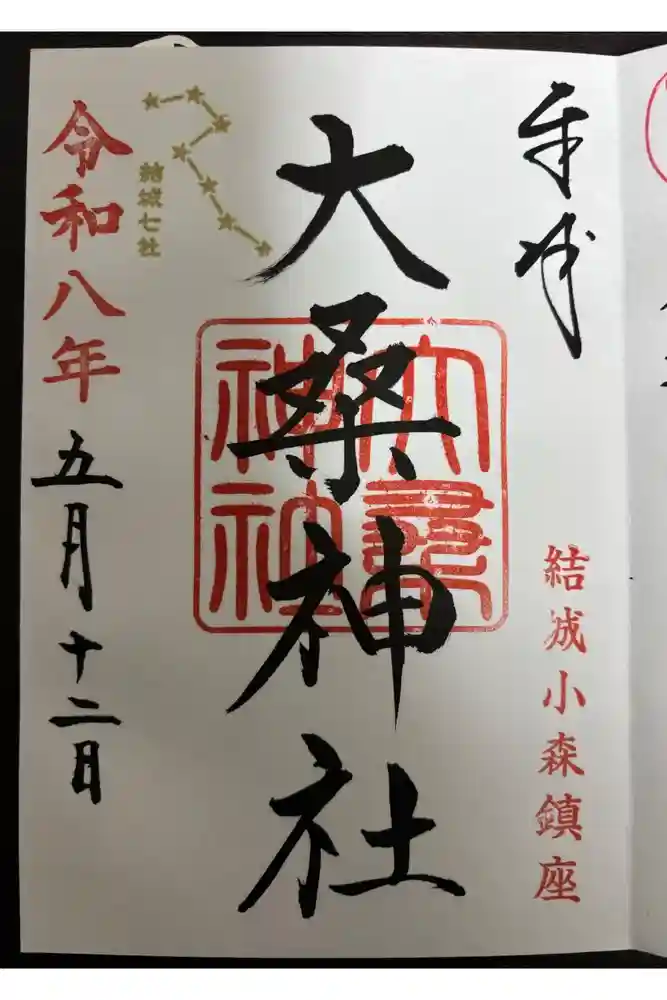 奉拝
結城小森鎮座
大桑神社
大桑神社
結城七社
令和八年五月十二日